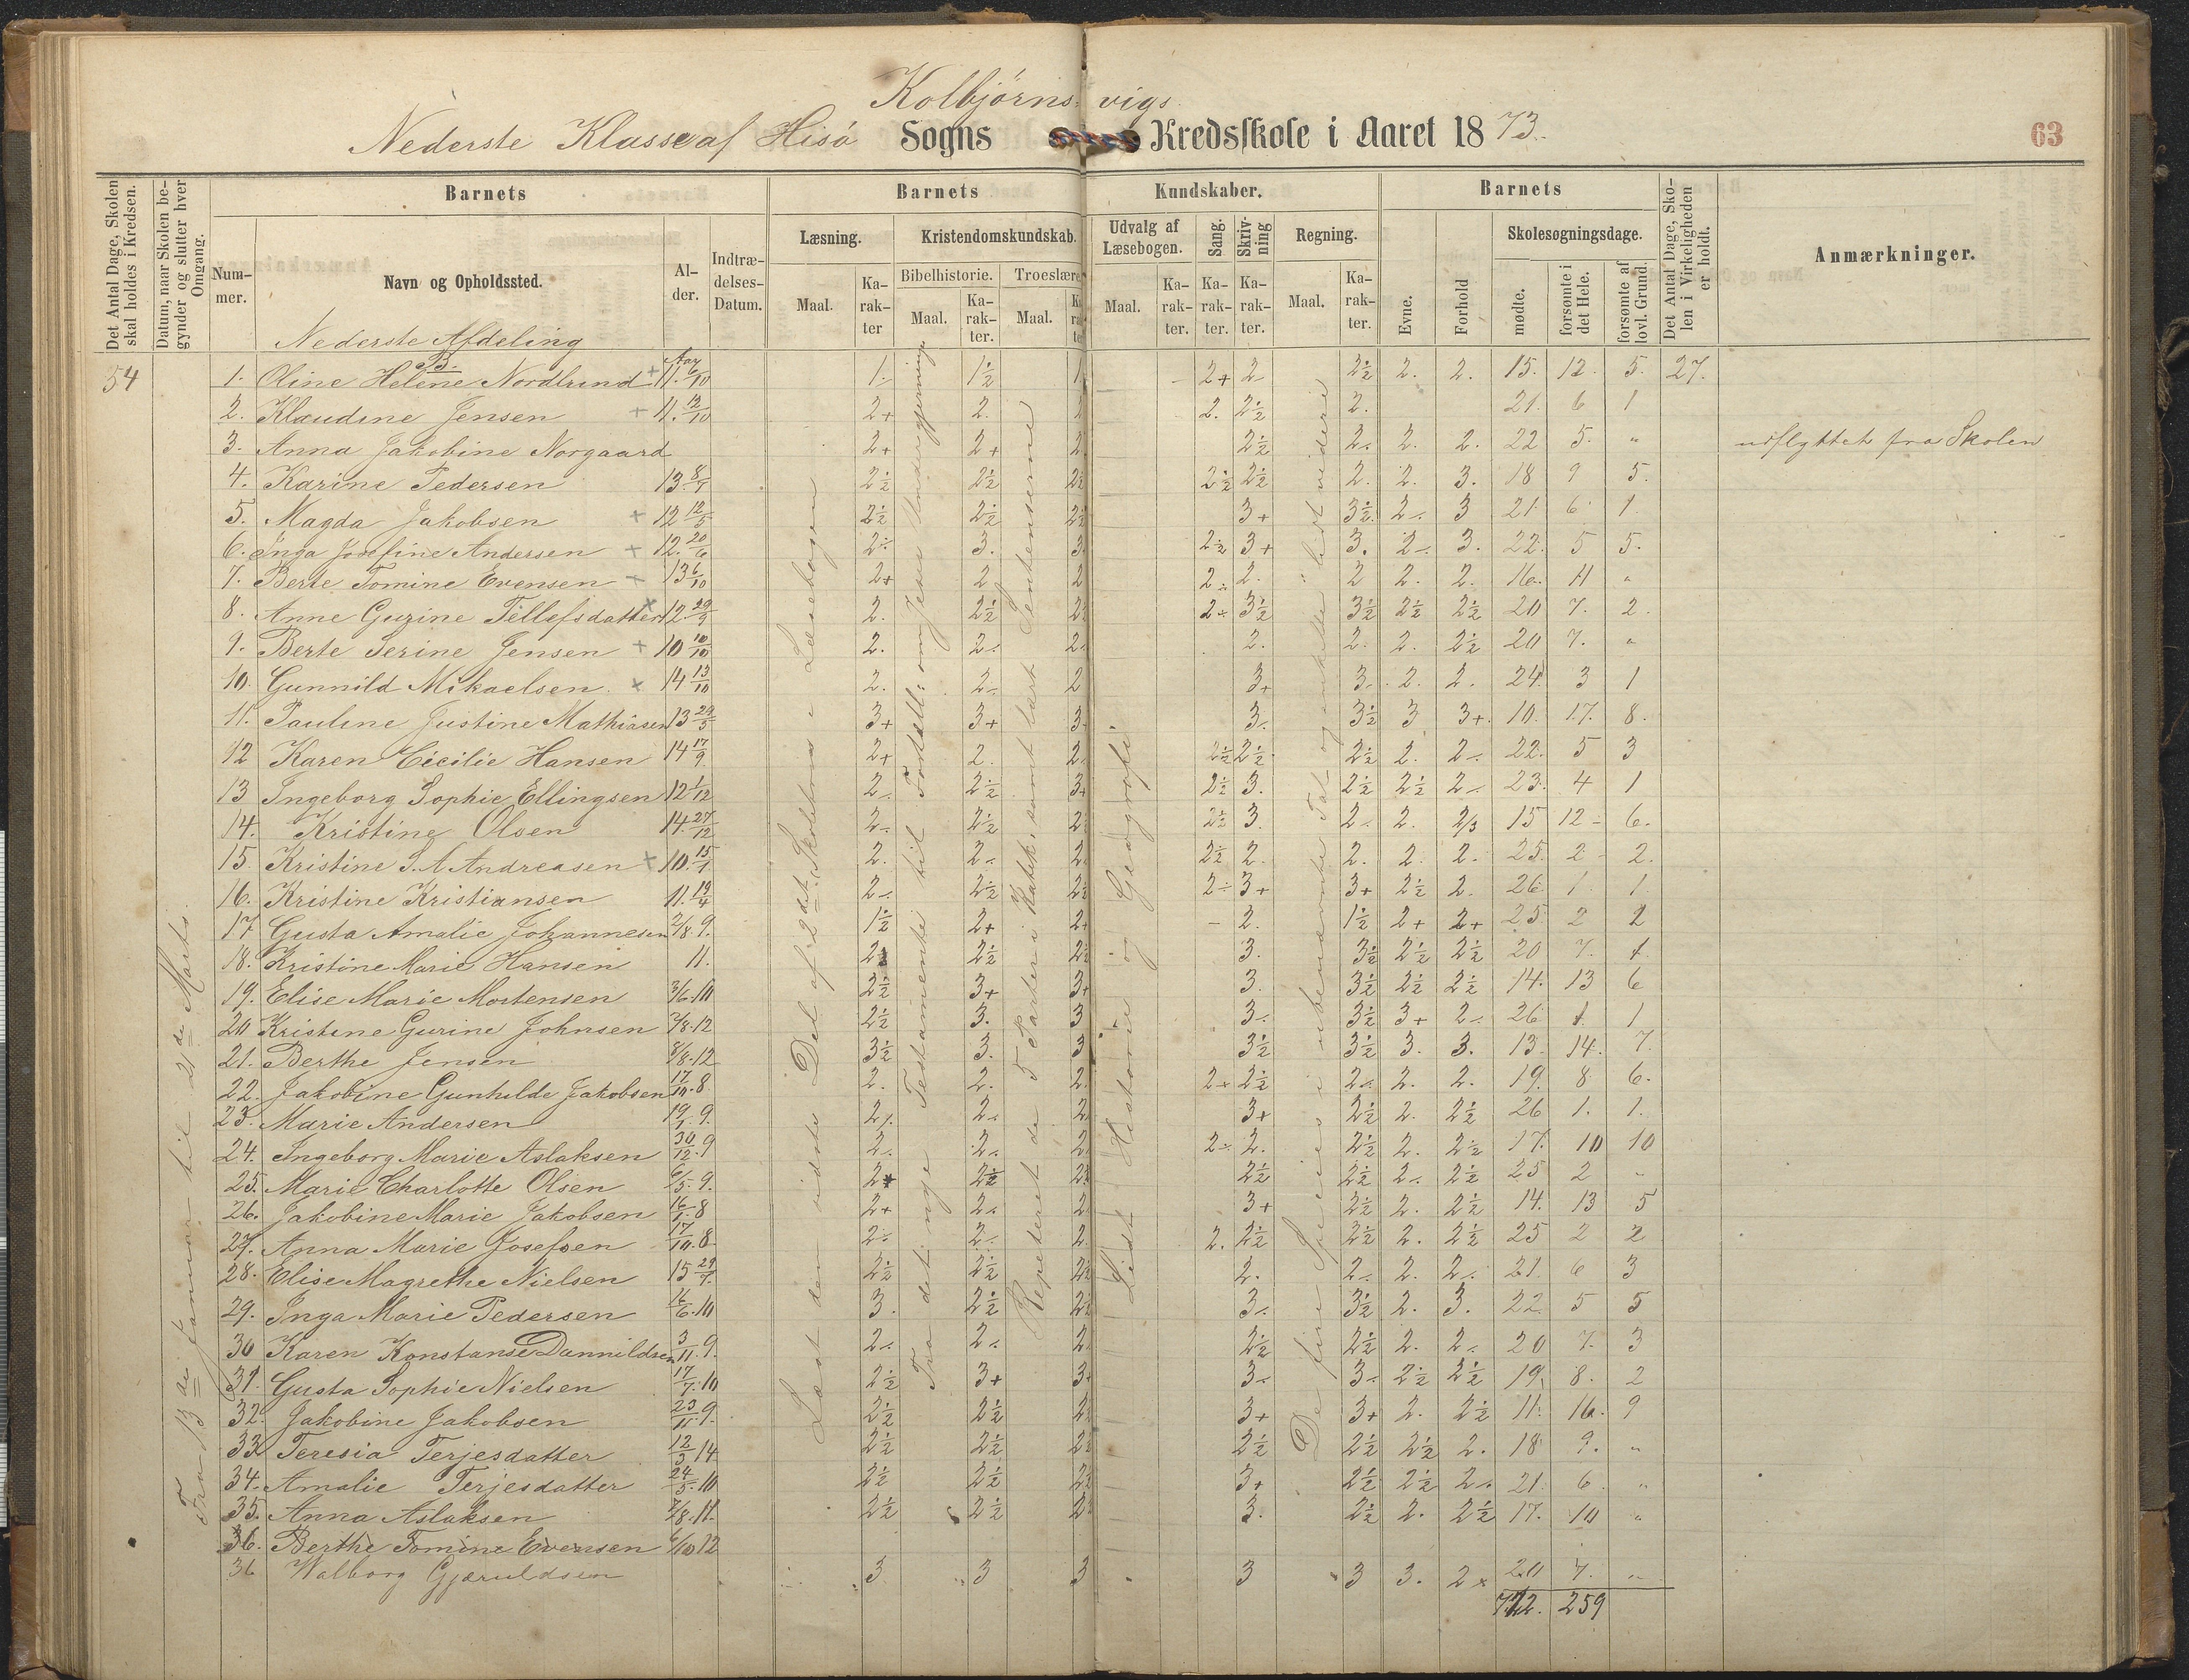 Kolbjörns- vigs
Nederste Klasse af Hisö Sogns Kredsskole i Aaret 1873.
63
Det Antal Dage, Skolen skal holdes i Kredsen.
Datum, naar Skolen begynder og slutter hver Omgang.
Barnets
Nummer.
Navn og Opholdssted.
Alder.
Indtrædelses-Datum.
Barnets Kundskaber.
Læsning.
Maal.
Karakter
Kristendomskundskab.
Bibelhistorie.
Maal.
Karakter.
Troeslære
Maal.
Udvalg af Læsebogen.
Maal.
Karakter.
Sang.
Karakter.
Skrivning
Karakter.
Regning.
Maal.
Karakter.
Barnets
Evne.
Forhold
Skolesøgningsdage.
mødte.
forsømte i det Hele.
forsømte af lovl. Grund.
Det Antal Dage, Skolen i Virkeligheden er holdt.
Anmærkninger.
Nederste Afdeling
B.
54
Fra 13de Januar til 21de Marts.
Læst den sidste Del af 2det Skoletrin i Læsebogen
Fra det nye Testamente til Fortæll. om Jesu Undergjerninger
Repeteret de 5 Parter i Katek. samt lært Sentenserne
Lidt Historie og Geografi.
De fire Species i ubenævnte Tal og enkelte lidt videre
1. Oline Helene Nordlund + 11. 6/10 1. 1½ 1 2+ 2 2½ 2. 2. 15. 12. 5. 27.
2. Klaudine Jensen + 11. 12/10 2+ 2. 2 2. 2½ 2. 21. 6 1
3. Anna Jakobine Norgaard 2+ 2+ 2 2½ 2. 2. 2. 22 5. " udflyttet fra Skolen
4. Karine Pedersen 13. 8/1 2½ 2½ 2½ 2½ 2½ 2. 2. 3. 18 9 5.
5. Magda Jakobsen + 12 12/5 2½ 2½ 2½ 3+ 3½ 2 3 21 6 1
6. Inga Josefine Andersen + 12. 20/6 2÷ 3. 3. 2½ 3+ 3. 2 3. 22. 5 5.
7. Berte Tomine Evensen + 13 6/10 2+ 2 2 2 2. 2 2. 2. 16. 11 "
8. Anne Guzine Tellefsdatter + 12. 29/9 2. 2½ 2 2÷ 3½ 3½ 2½ 2½ 20 7. 2.
9. Berte Serine Jensen + 10 10/10 2. 2 2 2. 2. 2. 2½ 20 7. "
10. Gunnild Mikaelsen. x 14 13/10 2. 2 2 3+ 3 2. 2. 24 3 1
11. Pauline Justine Mathiasen 13 29/5 3+ 3+ 3 3 3½ 3 3+ 10. 17. 8.
12 Karen Cicilie Hansen 14 17/9 2+ 2. 2 2½ 2½ 2½ 2. 2 22. 5 3
13 Ingeborg Sophie Ellingsen 12 1/12 2 2½ 3+ 2½ 3. 2½ 2½ 2 23. 4 1
14. Kristine Olsen 14. 27/12 2 2½ 2 2½ 3. 2 2. 2/3 15 12 6.
15. Kristine S. A. Andreasen + 10. 15/1 2. 2 2 2½ 2. 2. 2. 2. 25. 2 2.
16. Kristine Kristiansen 11. 19/4 2 2½ 2½ 2÷ 3+ 3+ 2½ 2. 26 1. 1.
17 Gusta Amalie Johannesen 2/8 9. 1½ 2+ 2 - 2. 1½ 2+ 2+ 25 2 2
18. Kristine Marie Hansen 11. 2 2½ 2½ 3. 3½ 2½ 2½ 20 7. 1.
19. Elise Marie Mortensen 3/6 10 2½ 3+ 3+ 3. 3½ 2½ 2½ 14. 13 6
20 Kristine Gurine Johnsen 7/8 12 2½ 3. 3 3 3½ 3+ 2 26 1. 1
21. Berthe Jensen 8/8 12 3½ 3. 3 3½ 3½ 3. 3. 13. 14. 7.
22. Jakobine Gunhilde Jakobsen 17/10 8 2. 2. 2. 2+ 2½ 2 2. 2. 19. 8 6.
23. Marie Andersen 19/1 9. 2 2 2 3+ 2½ 2. 2½ 26 1. 1.
24. Ingeborg Marie Aslaksen 30/12 9 2 2 2 2÷ 2. 2½ 2. 2½ 17. 10 10
25. Marie Charlotte Olsen 6/5 9. 2+ 2½ 2½ 2½ 2½ 2 2½ 25 2 "
26. Jakobine Marie Jakobsen 16/1 8 2+ 2 2 3+ 2½ 2. 2½ 14. 13 5
27. Anna Marie Josefsen 17/10 8 2 2 2. 2. 2½ 3½ 2. 2½ 25 2 2
28. Elise Magrethe Nielsen 15 29/7 2½ 2½ 2½ 2. 2 2. 2 21. 6 3
29. Inga Marie Pedersen 16/6 10 3. 2½ 2½ 3 3½ 2. 3. 22 5 5
30 Karen Konstanse Dannildsen 3/11 9. 2 2 2 2½ 2½ 2. 2 20 7. 3
31. Gusta Sophie Nielsen 17/7 10 2½ 3+ 3+ 3 3 2½ 2½ 19. 8. 2
32. Jakobine Jakobsen 23/11 9. 2½ 2½ 2½ 3+ 3+ 2. 2½ 11. 16. 9
33 Teresia Terjesdatter 12/3 14 2½ 2½ 2½ 2½ 2½ 2½ 2. 18 9. "
34. Amalie Terjesdatter 24/5 10 2½ 2½ 2½ 3+ 2½ 2½ 2 21. 6 "
35. Anna Aslaksen 7/8 11. 2½ 2½ 2 3. 2½ 2. 2½ 17. 10 "
36. Berthe Tomine Evensen 6/10 12
36 Valborg Gjæruldsen 3 3 3 3 3 3. 2 20 7. "
722. 259